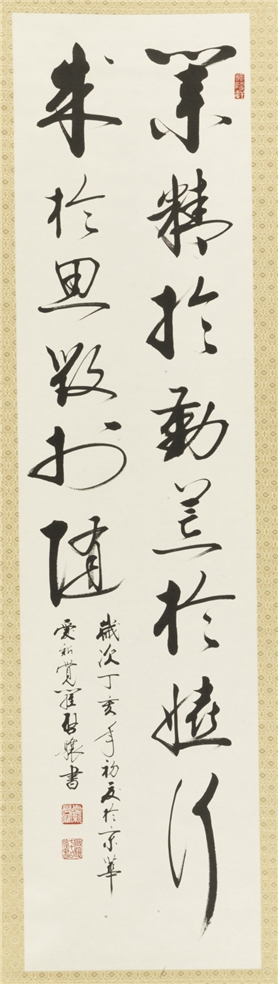 業精於勤荒於嬉行
成於思毀於隨
歲次丁亥年初夏於京華
愛新覺羅啟驤書